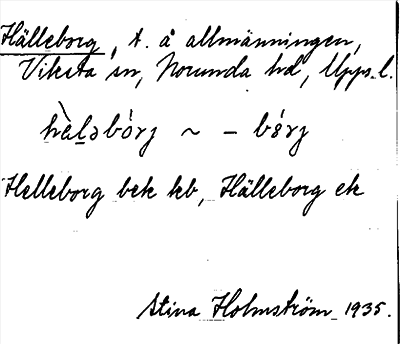 Hälleborg, t. å allmänningen,
Viksta sn, Norunda hd, Upps. l.
hèl̲əbórj ~ – bórj
Helleborg bek kb, Hälleborg ek
Stina Holmström 1935.